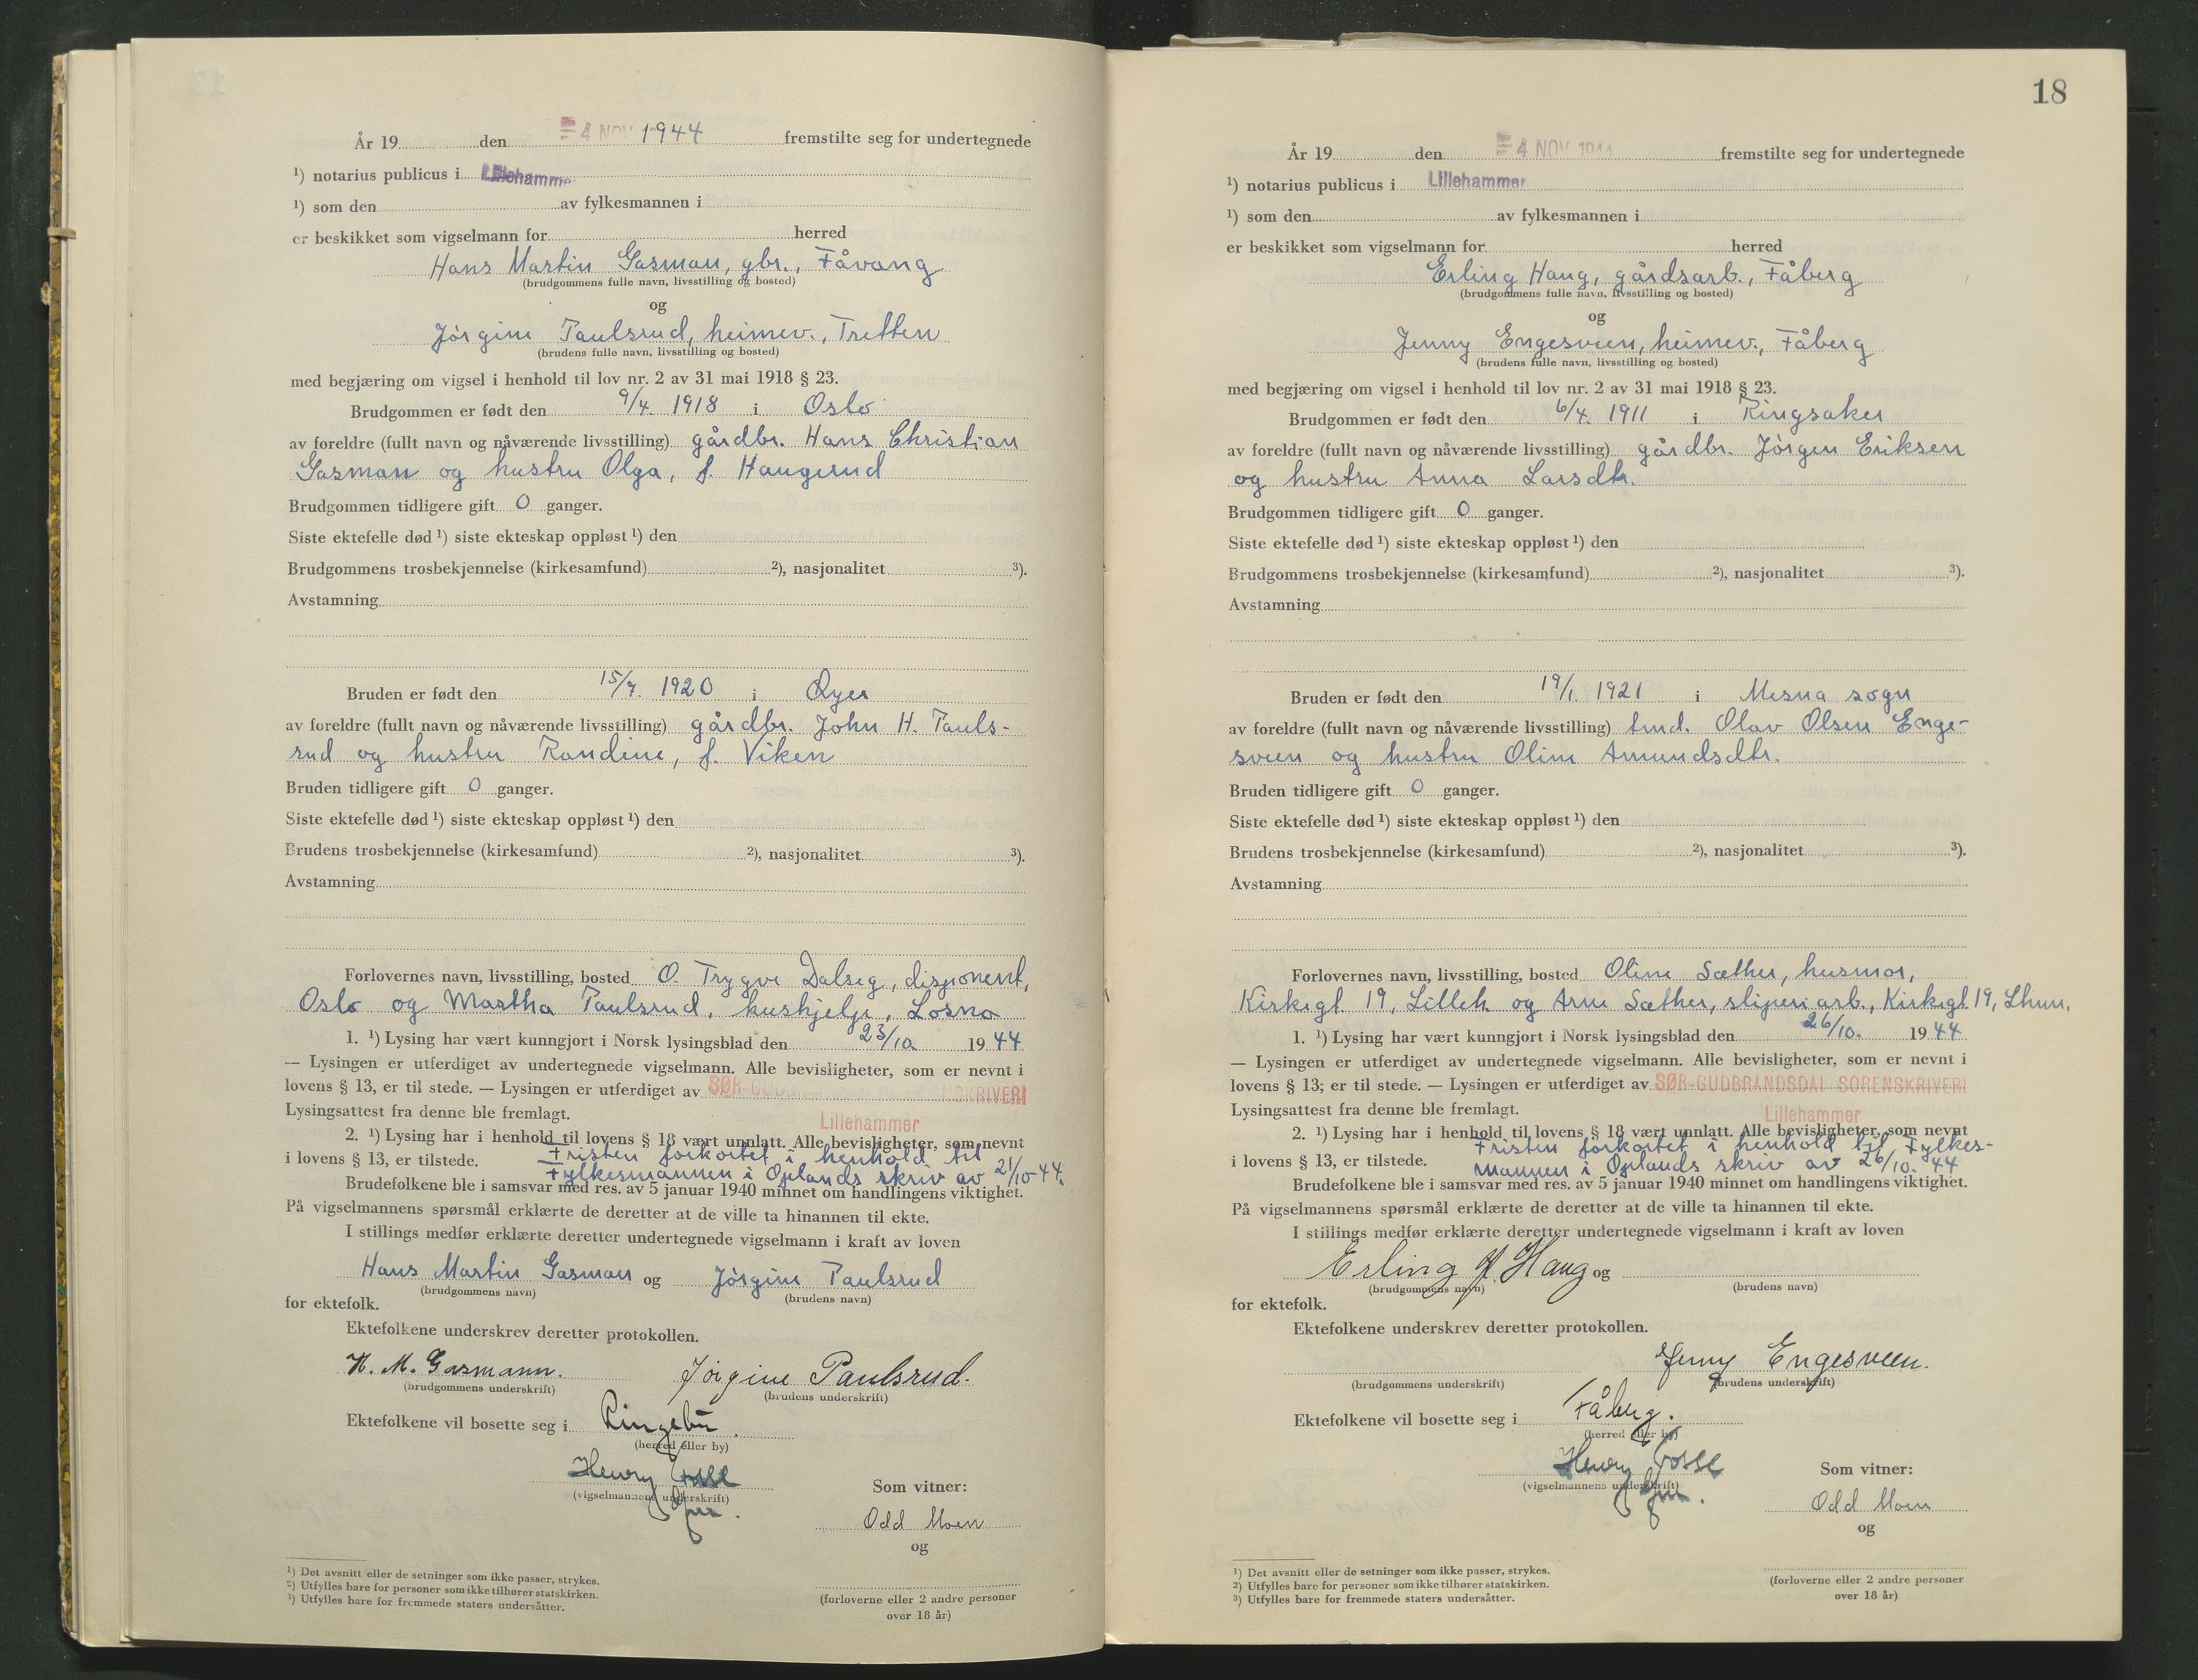 År 19 den 4 NOV 1944 fremstilte seg for undertegnede
¹) notarius publicus i Lillehammer
¹) som den av fylkesmannen i
er beskikket som vigselmann for herred
Hans Martin Gasman, gbr., Fåvang
(brudgommens fulle navn, livsstilling og bosted)
og
Jörgine Paulsrud, heimev., Tretten
(brudens fulle navn, livsstilling og bosted)
med begjæring om vigsel i henhold til lov nr. 2 av 31 mai 1918 § 23.
Brudgommen er født den 9/4. 1918 i Oslo
av foreldre (fullt navn og nåværende livsstilling) gårdbr. Hans Christian
Gasman og hustru Olga, f. Haugerud
Brudgommen tidligere gift 0 ganger.
Siste ektefelle død ¹) siste ekteskap oppløst ¹) den
Brudgommens trosbekjennelse (kirkesamfund) ²), nasjonalitet ³).
Avstamning
Bruden er født den 15/7. 1920 i Öyer
av foreldre (fullt navn og nåværende livsstilling) gårdbr. John H. Pauls-
rud og hustru Randine, f. Viken
Bruden tidligere gift 0 ganger.
Siste ektefelle død ¹) siste ekteskap oppløst ¹) den
Brudens trosbekjennelse (kirkesamfund) ²), nasjonalitet ³).
Avstamning
Forlovernes navn, livsstilling, bosted O. Trygve Dalseg, disponent,
Oslo og Martha Paulsrud, hushjelp, Losna
1. ¹) Lysing har vært kunngjort i Norsk lysingsblad den 23/10. 1944
— Lysingen er utferdiget av undertegnede vigselmann. Alle bevisligheter, som er nevnt i
lovens § 13, er til stede. — Lysingen er utferdiget av SØR-GUDBRANDSDAL SORENSKRIVERI
Lysingsattest fra denne ble fremlagt.
Lillehammer
2. ¹) Lysing har i henhold til lovens § 18 vært unnlatt. Alle bevisligheter, som nevnt
i lovens § 13, er tilstede. Fristen forkortet i henhold til
Fylkesmannen i Oplands skriv av 21/10 44.
Brudefolkene ble i samsvar med res. av 5 januar 1940 minnet om handlingens viktighet.
På vigselmannens spørsmål erklærte de deretter at de ville ta hinannen til ekte.
I stillings medfør erklærte deretter undertegnede vigselmann i kraft av loven
Hans Martin Gasman og Jörgine Paulsrud
(brudgommens navn) (brudens navn)
for ektefolk.
Ektefolkene underskrev deretter protokollen.
H. M. Gasmann. Jörgine Paulsrud.
(brudgommens underskrift) (brudens underskrift)
Ektefolkene vil bosette seg i Ringebu.
(herred eller by)
Henry Fosse
(vigselmannens underskrift)
Som vitner:
Odd Moen
og
(forloverne eller 2 andre personer
over 18 år)
¹) Det avsnitt eller de setninger som ikke passer, strykes.
²) Utfylles bare for personer som ikke tilhører statskirken.
³) Utfylles bare for fremmede staters undersåtter.
18
År 19 den 4 NOV 1944 fremstilte seg for undertegnede
¹) notarius publicus i Lillehammer
¹) som den av fylkesmannen i
er beskikket som vigselmann for herred
Erling Haug, gårdsarb., Fåberg
(brudgommens fulle navn, livsstilling og bosted)
og
Jenny Engesveen, heimev., Fåberg
(brudens fulle navn, livsstilling og bosted)
med begjæring om vigsel i henhold til lov nr. 2 av 31 mai 1918 § 23.
Brudgommen er født den 6/4. 1911 i Ringsaker
av foreldre (fullt navn og nåværende livsstilling) gårdbr. Jörgen Eriksen
og hustru Anna Larsdtr.
Brudgommen tidligere gift 0 ganger.
Siste ektefelle død ¹) siste ekteskap oppløst ¹) den
Brudgommens trosbekjennelse (kirkesamfund) ²), nasjonalitet ³).
Avstamning
Bruden er født den 19/1. 1921 i Mesna sogn
av foreldre (fullt navn og nåværende livsstilling) tmd. Olav Olsen Enge-
sveen og hustru Oline Amundsdtr.
Bruden tidligere gift 0 ganger.
Siste ektefelle død ¹) siste ekteskap oppløst ¹) den
Brudens trosbekjennelse (kirkesamfund) ²), nasjonalitet ³).
Avstamning
Forlovernes navn, livsstilling, bosted Oline Sæther, husmor,
Kirkegt. 19, Lilleh. og Arne Sæther, sliperiarb., Kirkegt. 19, Lhmr.
1. ¹) Lysing har vært kunngjort i Norsk lysingsblad den 26/10. 1944
— Lysingen er utferdiget av undertegnede vigselmann. Alle bevisligheter, som er nevnt i
lovens § 13; er til stede. — Lysingen er utferdiget av SØR-GUDBRANDSDAL SORENSKRIVERI
Lysingsattest fra denne ble fremlagt.
Lillehammer
2. ¹) Lysing har i henhold til lovens § 18 vært unnlatt. Alle bevisligheter, som nevnt
i lovens § 13, er tilstede. Fristen forkortet i henhold til Fylkes-
mannen i Oplands skriv av 26/10. 44
Brudefolkene ble i samsvar med res. av 5 januar 1940 minnet om handlingens viktighet.
På vigselmannens spørsmål erklærte de deretter at de ville ta hinannen til ekte.
I stillings medfør erklærte deretter undertegnede vigselmann i kraft av loven
Erling J. Haug og
(brudgommens navn) (brudens navn)
for ektefolk.
Ektefolkene underskrev deretter protokollen.
Jenny Engesveen.
(brudgommens underskrift) (brudens underskrift)
Ektefolkene vil bosette seg i Fåberg.
(herred eller by)
Henry Fosse
(vigselmannens underskrift)
Som vitner:
Odd Moen
og
(forloverne eller 2 andre personer
over 18 år)
¹) Det avsnitt eller de setninger som ikke passer, strykes.
²) Utfylles bare for personer som ikke tilhører statskirken.
³) Utfylles bare for fremmede staters undersåtter.